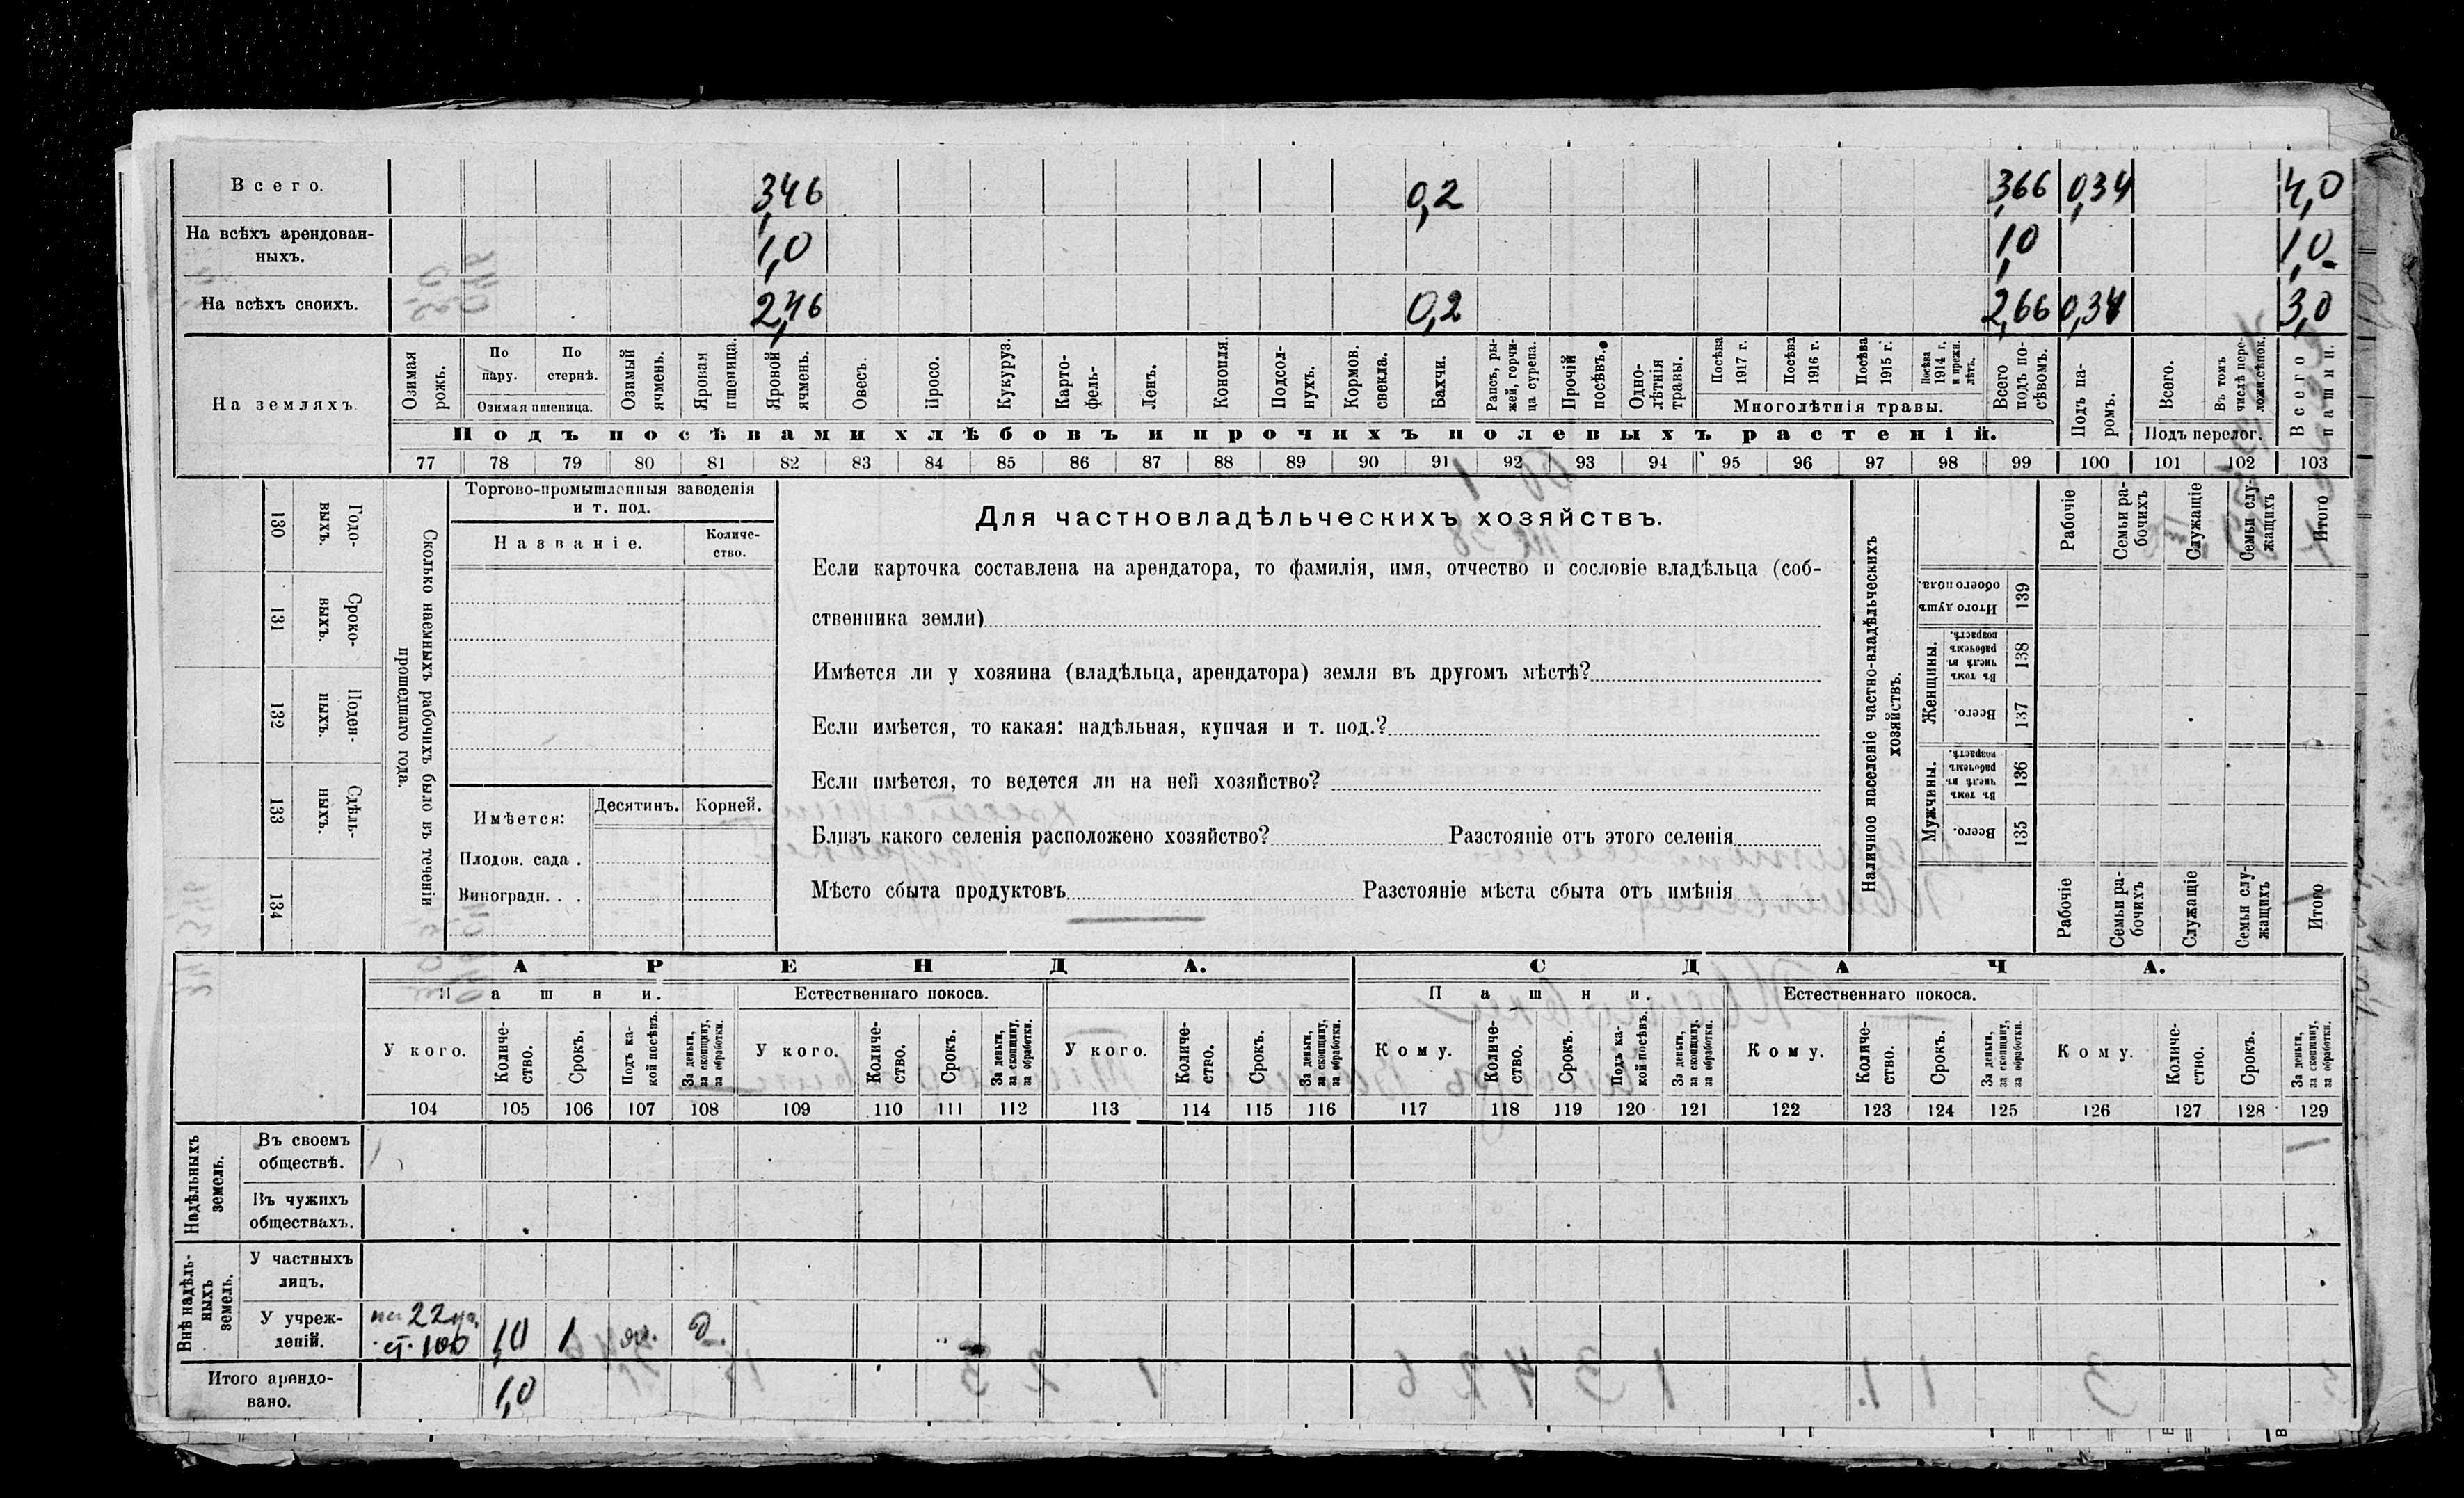 Всего. 3,46 0,2 3,66 0,34 4,0
На всѣхъ арендован-
ныхъ. 1,0 1,0 1,0
На всѣхъ своихъ. 2,46 0,2 2,66 0,34 3,0
На земляхъ
Озимая рожь.
По пару.
По стернѣ.
Озимая пшеница.
Озимый ячмень.
Яровая пшеница.
Яровой ячмень.
Овесъ.
Просо.
Кукуруз.
Карто-
фель-
Ленъ.
Конопля.
Подсол-
нухъ.
Кормов. свекла.
Бахчи.
Рапсъ, ры-
жей, горчи-
ца сурепа.
Прочій посѣвъ.
Одно-
лѣтнія травы.
Посѣва 1917 г.
Посѣва 1916 г.
Посѣва 1915 г.
Посѣва 1914 г. и прежн. лѣтъ.
Многолѣтнія травы.
Всего подъ по-
сѣвомъ.
Подъ па-
ромъ.
Всего.
Въ томъ числѣ пере-
лож. сѣнок.
Подъ перелог.
Всего пашни.
Подъ посѣвами хлѣбовъ и прочихъ полевыхъ растеній.
77 78 79 80 81 82 83 84 85 86 87 88 89 90 91 92 93 94 95 96 97 98 99 100 101 102 103
Сколько наемныхъ рабочихъ было въ теченіи
прошедшаго года.
Годо-
выхъ.
130
Сроко-
выхъ.
131
Поден-
ныхъ.
132
Сдѣль-
ныхъ.
133
134
Торгово-промышленныя заведенія
и т. под.
Названіе.
Количе-
ство.
Имѣется:
Десятинъ. Корней.
Плодов. сада .
Виноградн. . .
Для частновладѣльческихъ хозяйствъ.
Если карточка составлена на арендатора, то фамилія, имя, отчество и сословіе владѣльца (соб-
ственника земли)
Имѣется ли у хозяина (владѣльца, арендатора) земля въ другомъ мѣстѣ?
Если имѣется, то какая: надѣльная, купчая и т. под.?
Если имѣется, то ведется ли на ней хозяйство?
Близъ какого селенія расположено хозяйство? Разстояніе отъ этого селенія
Мѣсто сбыта продуктовъ Разстояніе мѣста сбыта отъ имѣнія
Наличное населеніе частно-владѣльческихъ
хозяйствъ.
Рабочіе
Семьи ра-
бочихъ
Служащіе
Семьи слу-
жащихъ
Итого
Итого душъ обоего пола.
139
Женщины.
Въ томъ числѣ въ рабочемъ возрастѣ.
138
Всего.
137
Мужчины.
Въ томъ числѣ въ рабочемъ возрастѣ.
136
Всего.
135
Рабочіе
Семьи ра-
бочихъ
Служащіе
Семьи слу-
жащихъ
Итого
АРЕНДА. СДАЧА.
Пашни. Естественнаго покоса. Пашни. Естественнаго покоса.
У кого.
Количе-
ство.
Срокъ.
Подъ ка-
кой посѣвъ.
За деньги, за скопщину, за обработки.
У кого.
Количе-
ство.
Срокъ.
За деньги, за скопщину, за обработки.
У кого.
Количе-
ство.
Срокъ.
За деньги, за скопщину, за обработки.
Кому.
Количе-
ство.
Срокъ.
Подъ ка-
кой посѣвъ.
За деньги, за скопщину, за обработки.
Кому.
Количе-
ство.
Срокъ.
За деньги, за скопщину, за обработки.
Кому.
Количе-
ство.
Срокъ.
За деньги, за скопщину, за обработки.
104 105 106 107 108 109 110 111 112 113 114 115 116 117 118 119 120 121 122 123 124 125 126 127 128 129
Надѣльныхъ
земель.
Въ своемъ
обществѣ.
Въ чужихъ
обществахъ.
Внѣ надѣль-
ныхъ
земель.
У частныхъ
лицъ.
У учреж-
деній. 22 100 1,0 1 яч. д.
Итого арендо-
вано. 1,0